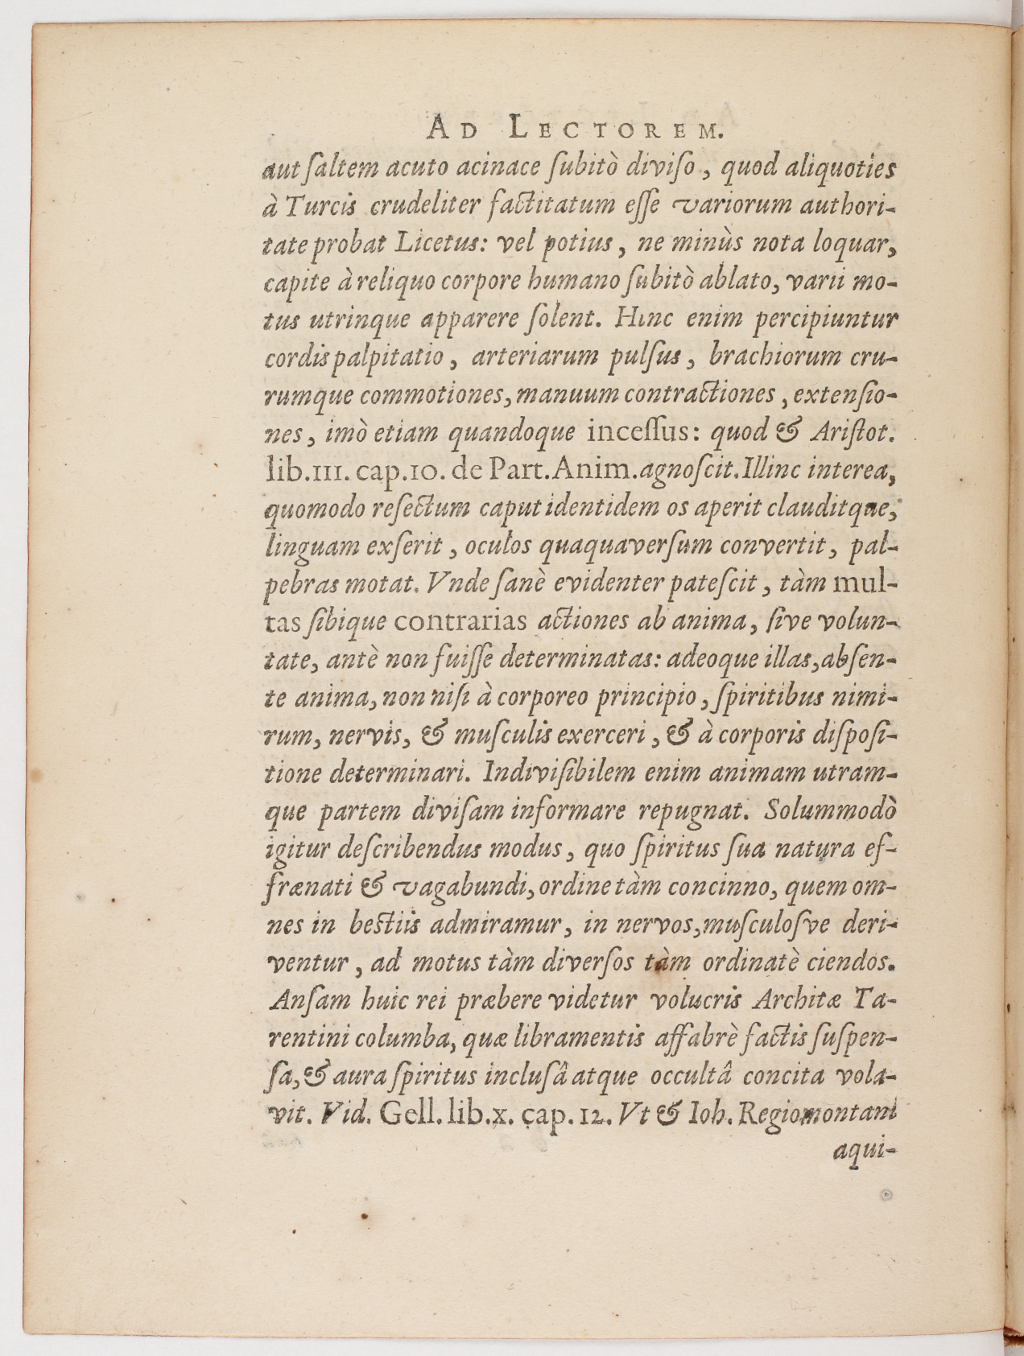 AD LECTOREM.
aut ſaltem acuto acinace ſubitò diviſo, quod aliquoties
à Turcis crudeliter factitatum eſſe variorum authori-
tate probat Licetus: vel potius, ne minùs nota loquar,
capite à reliquo corpore humano ſubitò ablato, varii mo-
tus utrinque apparere ſolent. Hinc enim percipiuntur
cordis palpitatio, arteriarum pulſus, brachiorum cru-
rumque commotiones, manuum contractiones, extenſio-
nes, imò etiam quandoque inceſſus: quod & Ariſtot.
lib. III. cap. 10. de Part. Anim. agnoſcit. Illinc interea,
quomodo reſectum caput identidem os aperit clauditque,
linguam exſerit, oculos quaquaverſum convertit, pal-
pebras motat. Vnde ſanè evidenter pateſcit, tàm mul-
tas ſibique contrarias actiones ab anima, ſive volun-
tate, antè non fuiſſe determinatas: adeoque illas, abſen-
te anima, non niſi à corporeo principio, ſpiritibus nimi-
rum, nervis, & muſculis exerceri, & à corporis diſpoſi-
tione determinari. Indiviſibilem enim animam utram-
que partem diviſam informare repugnat. Solummodò
igitur deſcribendus modus, quo ſpiritus ſua natura ef-
frænati & vagabundi, ordine tàm concinno, quem om-
nes in beſtiis admiramur, in nervos, muſculoſve deri-
ventur, ad motus tàm diverſos tàm ordinatè ciendos.
Anſam huic rei præbere videtur volucris Architæ Ta-
rentini columba, quæ libramentis affabrè factis ſuſpen-
ſa, & aura ſpiritus incluſâ atque occultâ concita vola-
vit. Vid. Gell. lib. x. cap. 12. Vt & Ioh. Regiomontani
aqui-